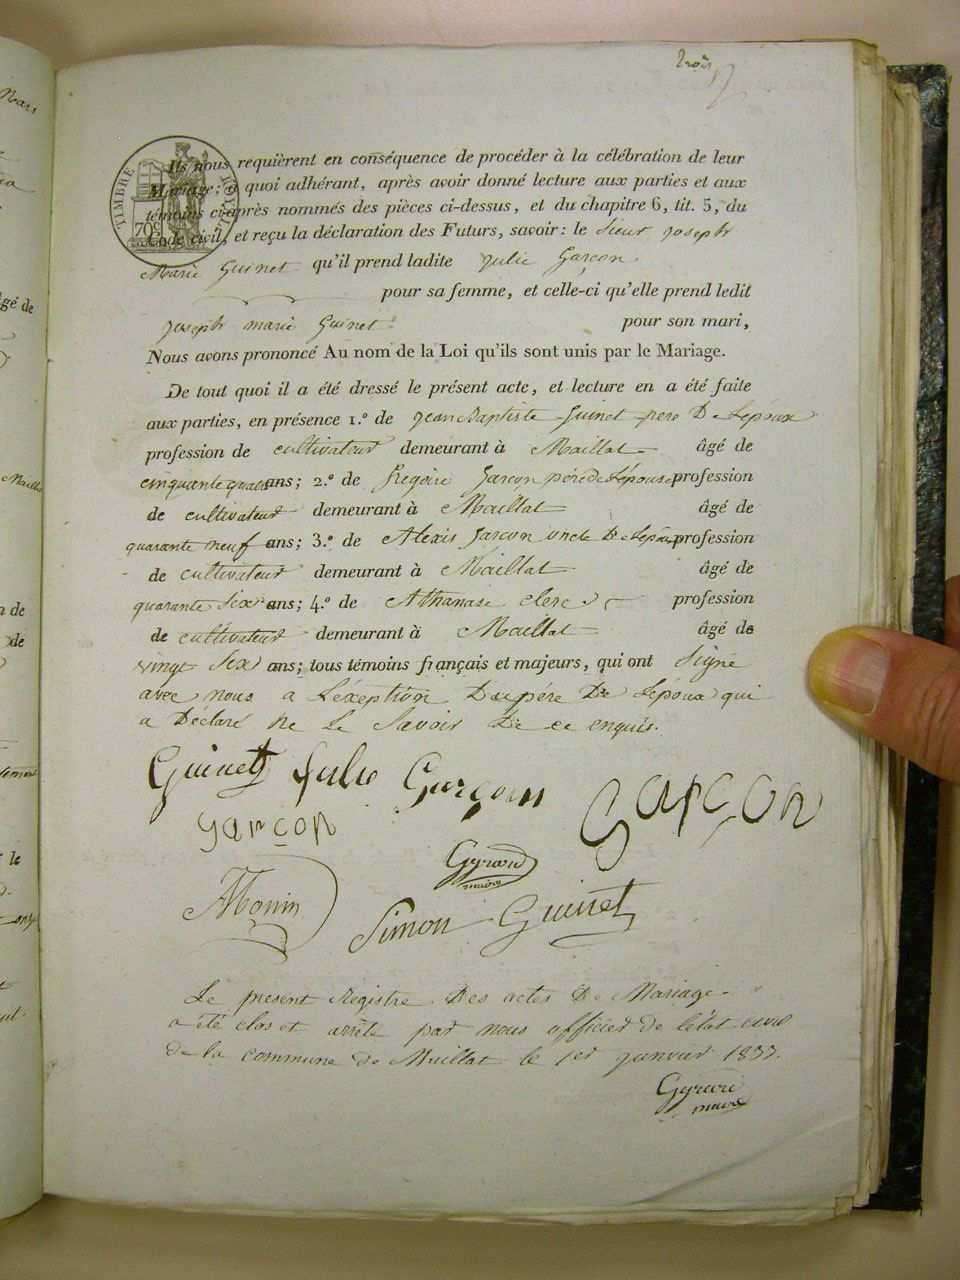 trois
TIMBRE ROYAL
70c
Ils nous requièrent en conséquence de procéder à la célébration de leur
Mariage; à quoi adhérant, après avoir donné lecture aux parties et aux
témoins ci-après nommés des pièces ci-dessus, et du chapitre 6, tit. 5, du
Code civil, et reçu la déclaration des Futurs, savoir: le Sieur joseph
Marie Guinet qu'il prend ladite julie Garçon
pour sa femme, et celle-ci qu'elle prend ledit
joseph marie Guinet pour son mari,
Nous avons prononcé Au nom de la Loi qu'ils sont unis par le Mariage.
De tout quoi il a été dressé le présent acte, et lecture en a été faite
aux parties, en présence 1.º de jean Baptiste Guinet pere De Lepoux
profession de cultivateur demeurant à Maillat âgé de
cinquante quatre ans; 2.º de Gregoire Garçon pere de Lépouse profession
de cultivateur demeurant à Maillat âgé de
quarante neuf ans; 3.º de Alexis Garçon oncle De Lepouse profession
de cultivateur demeurant à Maillat âgé de
quarante Six ans; 4.º de Athanase clerc profession
de cultivateur demeurant à Maillat âgé de
vingt Six ans; tous témoins français et majeurs, qui ont Signé
avec nous a Léxeption Du pére De Lépoux qui
a Déclaré ne Le Savoir De ce enquis.
Guinet Julie Garçon Garçon
garçon
Gyrard
maire
Monin
Simon Guinet
Le present Registre Des actes De Mariage
a été clos et arrêté par nous officier de létat civil
de la commune de Maillat le 1er janvier 1837.
Gyrard
maire